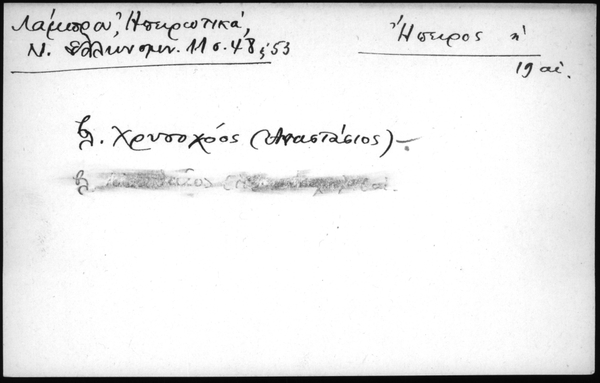 Λάμπρου, Ἠπειρωτικά,
Ν. Ἑλληνομν. 11 σ. 48, 53
Ἤπειρος
19 αἰ.
βλ. Χρυσοχόος (Ἀναστάσιος) –
βλ.